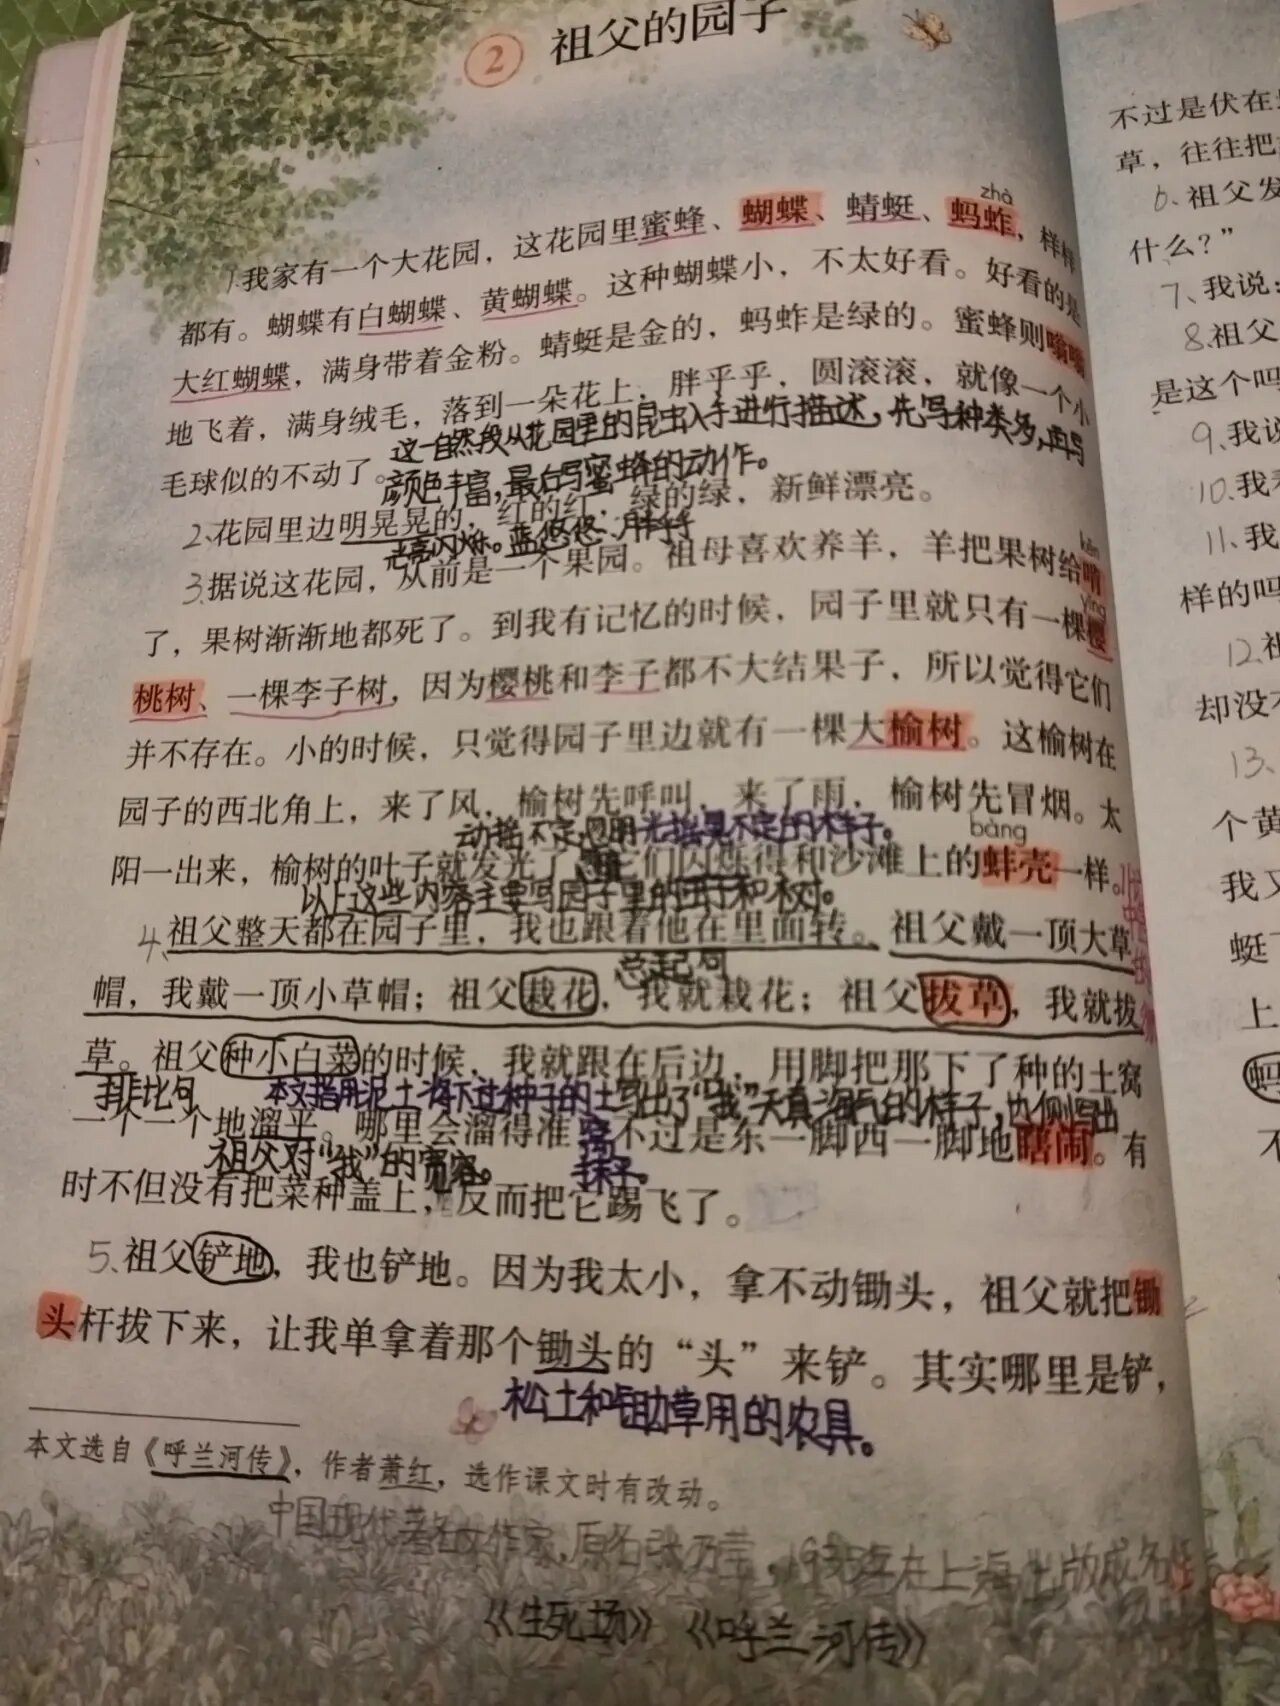 2 祖父的园子
zhà
1.我家有一个大花园，这花园里蜜蜂、蝴蝶、蜻蜓、蚂蚱，样样
都有。蝴蝶有白蝴蝶、黄蝴蝶。这种蝴蝶小，不太好看。好看的是
大红蝴蝶，满身带着金粉。蜻蜓是金的，蚂蚱是绿的。蜜蜂则嗡嗡
地飞着，满身绒毛，落到一朵花上，胖乎乎，圆滚滚，就像一个小
这一自然段从花园里的昆虫入手进行描述，先写种类多，再写
毛球似的不动了。
颜色丰富，最后写蜜蜂的动作。
2、花园里边明晃晃的，红的红，绿的绿，新鲜漂亮。
光亮闪烁。蓝悠悠、胖乎乎
kěn
3.据说这花园，从前是一个果园。祖母喜欢养羊，羊把果树给啃
yīng
了，果树渐渐地都死了。到我有记忆的时候，园子里就只有一棵樱
桃树、一棵李子树，因为樱桃和李子都不大结果子，所以觉得它们
并不存在。小的时候，只觉得园子里边就有一棵大榆树。这榆树在
园子的西北角上，来了风，榆树先呼叫，来了雨，榆树先冒烟。太
动摇不定，忽明 光摇晃不定的样子。
bàng
阳一出来，榆树的叶子就发光了，它们闪烁得和沙滩上的蚌壳一样。
以上这些内容主要写园子里的 和树。
4、祖父整天都在园子里，我也跟着他在里面转。祖父戴一顶大草
总起句
帽，我戴一顶小草帽；祖父栽花，我就栽花；祖父拔草，我就拔
草。祖父种小白菜的时候，我就跟在后边，用脚把那下了种的土窝
排比句 本文指用泥土将下过种子的土 写出了“我”天真淘气的样子，也侧写出
一个一个地溜平。哪里会溜得准，不过是东一脚西一脚地瞎闹。有
祖父对“我”的宽容。 窝 抹平。
时不但没有把菜种盖上，反而把它踢飞了。
5、祖父铲地，我也铲地。因为我太小，拿不动锄头，祖父就把锄
头杆拔下来，让我单拿着那个锄头的“头”来铲。其实哪里是铲，
松土和锄草用的农具。
本文选自《呼兰河传》，作者萧红，选作课文时有改动。
中国现代著名女作家，原名张乃莹，1935年在上海出版成名
《生死场》《呼兰河传》
不过是伏在
草，往往把
6、祖父发
什么？”
7、我说：
8、祖父
是这个吗
9、我说
10、我
11、我
样的吗
12、祖
却没
13、
个黄
我又
蜓
上
蚂
不